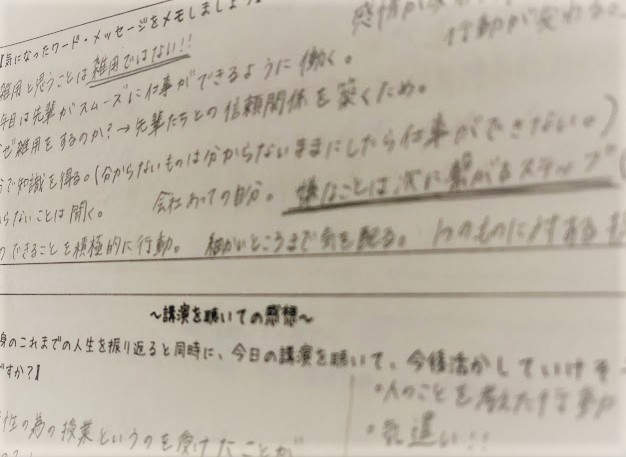 【気になったワード・メッセージをメモしましょう
感情が
行動が変わる。
雑用と思うことは雑用ではない!!
年目は先輩がスムーズに仕事ができるように働く。
ぜ雑用をするのか?→先輩たちとの信頼関係を築くため。
で知識を得る。(分からないものは分からないままにしたら仕事ができない。)
らないことは聞く。 会社あっての自分。 嫌なことは次に繋がるステップ
のできることを積極的に行動。 細かいところまで気を配る。 1つのものに対する
~講演を聴いての感想~
身のこれまでの人生を振り返ると同時に、今日の講演を聴いて、今後活かしていけそ
ですか?】
・人のことを考えた行動
・気遣い!!
性の為の授業というのを受けたことが